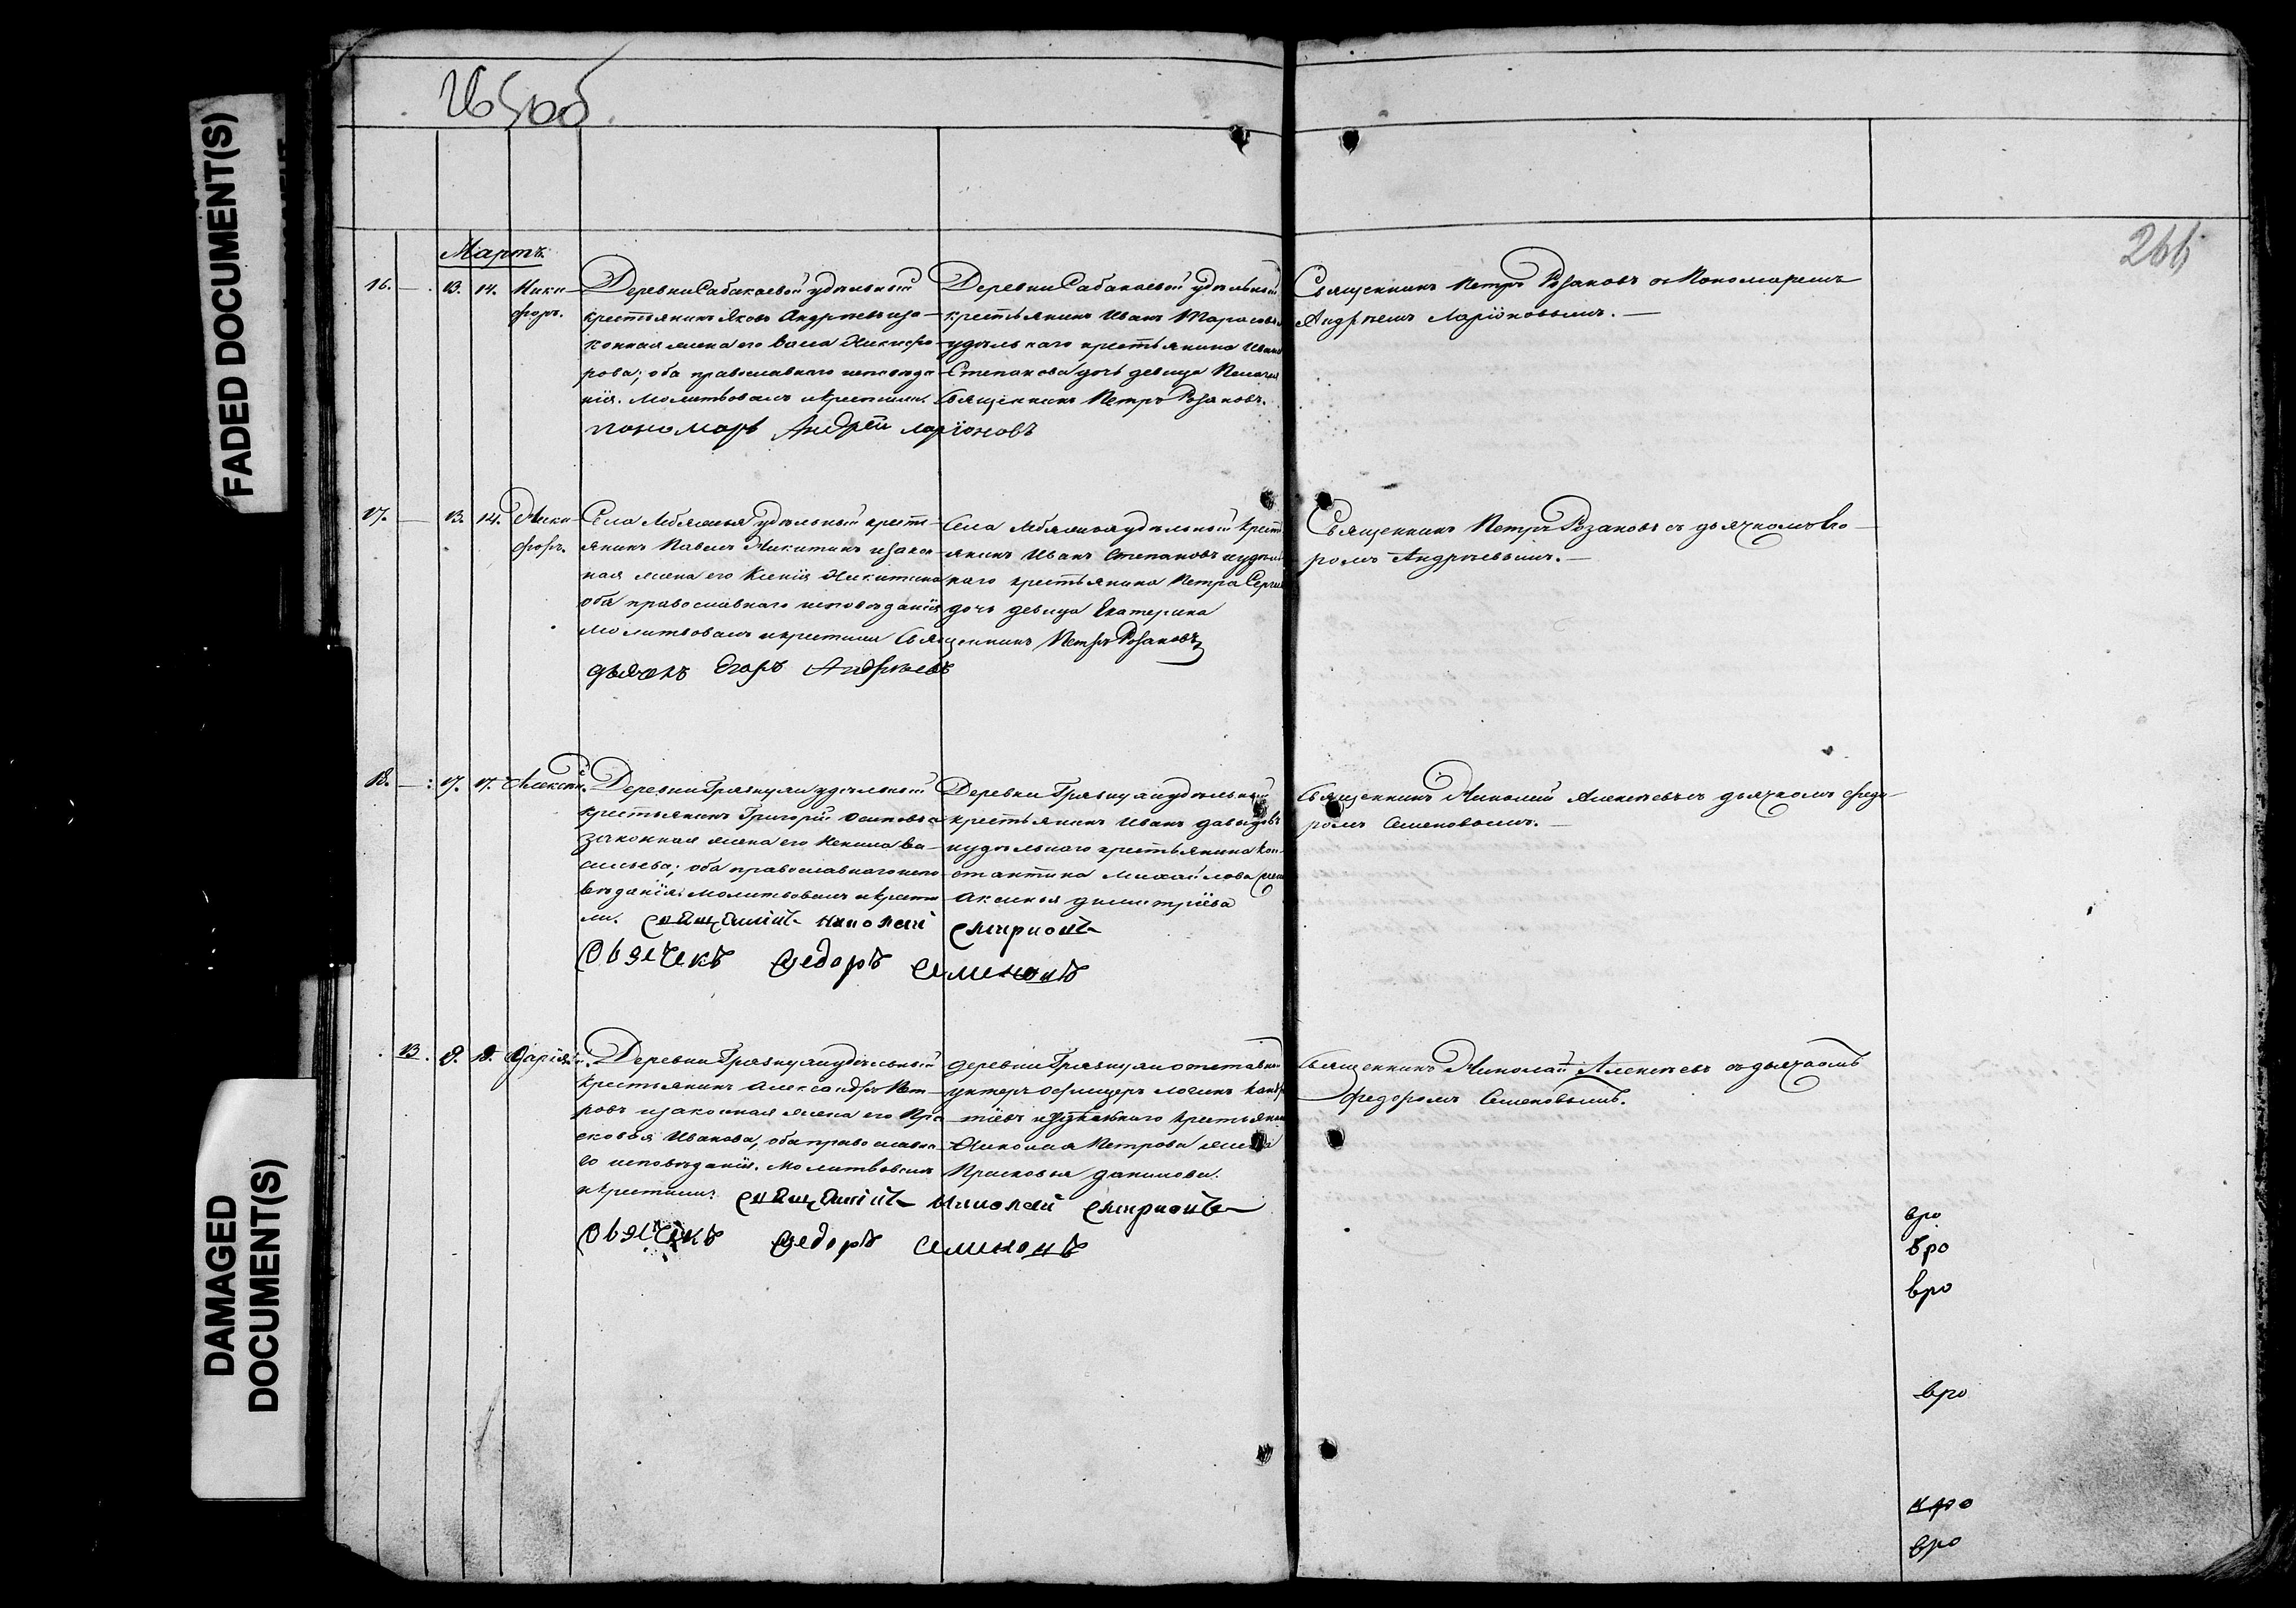 265об
266
Мартъ.
16. — 13. 14. Ники-
форъ.
Деревни Сабакаевой удѣльный
крестьянинъ Яковъ Андрѣевъ и за-
конная жена его Васса Никифо-
рова; оба православнаго исповѣда-
нія. Молитвовалъ и крестилъ Священникъ Петръ Розановъ.
пономарь Андрей Ларіоновъ
Деревни Сабакаевой удѣльный
крестьянинъ Иванъ Тарасовъ и
удѣльнаго крестьянина Ивана
Степанова дочь девица Пелагия
Священникъ Петръ Розановъ съ Пономаремъ
Андрѣемъ Ларіоновымъ. —
17. — 13. 14. Ники-
форъ.
Села Лебяжья удѣльный кресть-
янинъ Павелъ Никитинъ и закон-
ная жена его Ксенія Никитина
оба православнаго исповѣданія
Молитвовалъ и крестилъ Священникъ Петръ Розановъ
дьячекъ Егоръ Андреевъ
Села Лебяжья удѣльный кресть-
янинъ Иванъ Степановъ и удѣль-
наго крестьянина Петра Сергѣева
дочь девица Екатерина
Священникъ Петръ Розановъ съ дьячкомъ Его-
ромъ Андрѣевымъ. —
18. — 17. 17. Алексѣй.
Деревни Грязнухи удѣльный
крестьянинъ Григорій Осиповъ и
законная жена его Ненила Ва-
сильева; оба православнаго испо-
вѣданія. Молитвовалъ и крести-
лъ. священникъ николай смирновъ
Дьячекъ Федоръ Семеновъ
Деревни Грязнухи удѣльный
крестьянинъ Иванъ Давыдовъ
и удѣльнаго крестьянина Кон-
стантина Михайлова жена
Аксинья Димитріева
Священникъ Николай Алексѣевъ съ дьячкомъ Федо-
ромъ Семеновымъ. —
13. 18. Дарія.
Деревни Грязнухи удѣльный
крестьянинъ Александръ Пет-
ровъ и законная жена его Пра-
сковья Иванова, оба православна-
го исповѣданія. Молитвовалъ
и крестилъ священникъ николай смирновъ
Дьячекъ Федоръ Семеновъ
деревни Грязнухи отставной
унтеръ офицеръ Логинъ
и удѣльнаго крестьянина
Николая Петрова жена
Прасковья Данилова.
Священникъ Николай Алексѣевъ съ дьячкомъ
Федоромъ Семеновымъ.
вро
вро
вро
вро
вро
FADED DOCUMENT(S)
DAMAGED
DOCUMENT(S)